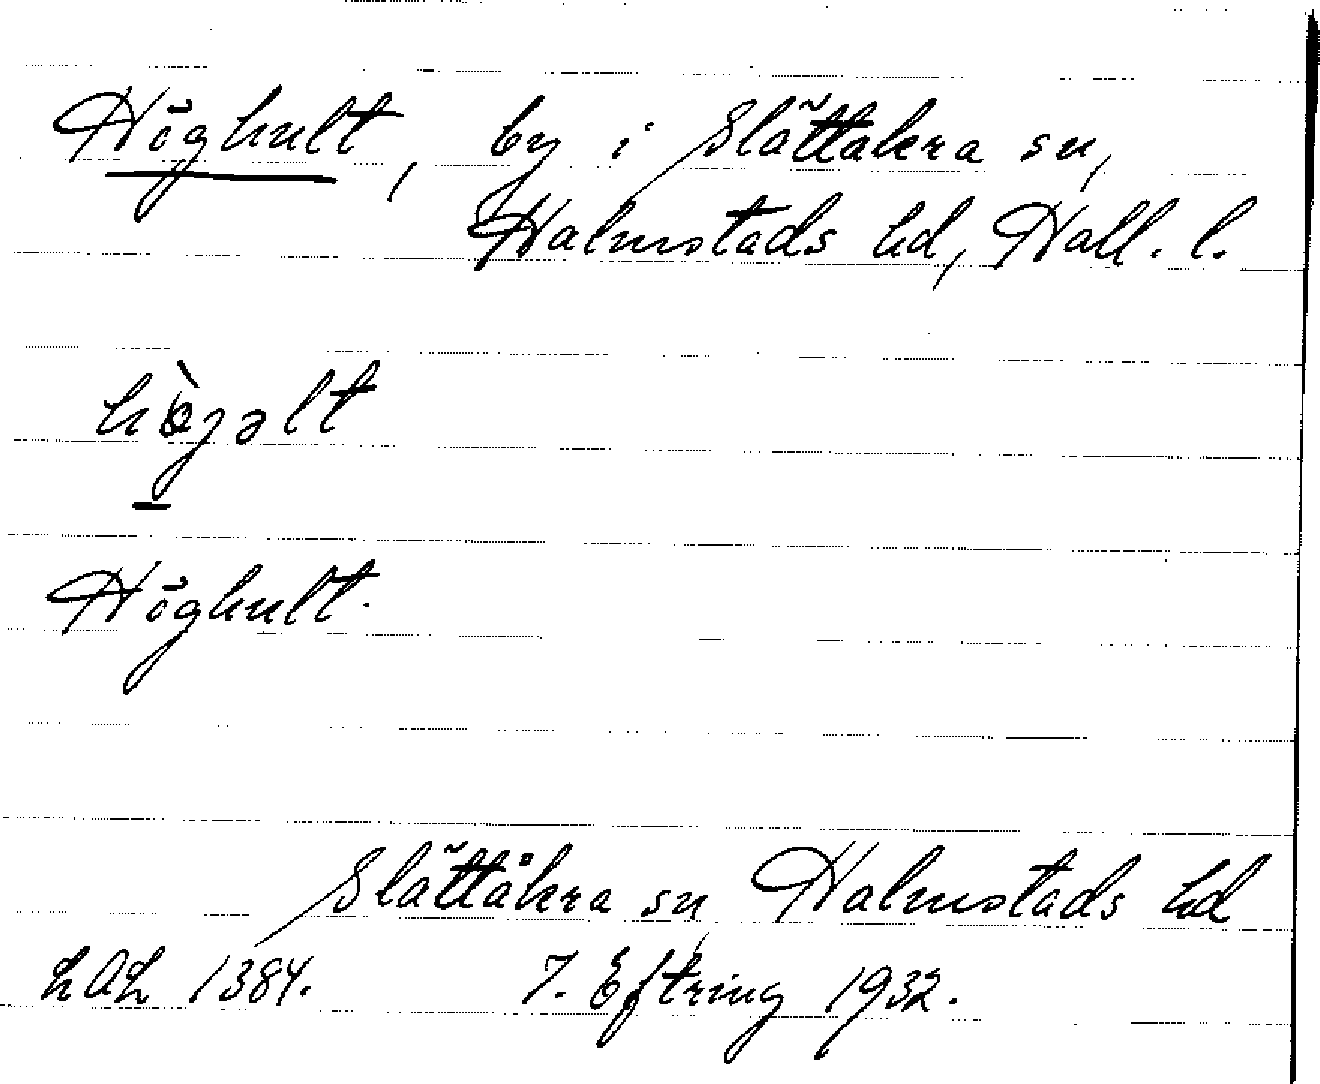 Höghult, by i Slättakra sn,
Halmstads hd, Hall. l.
hògəlt
Höghult.
Slättåkra sn, Halmstads hd
LAL 1384. T. Eftring 1932.